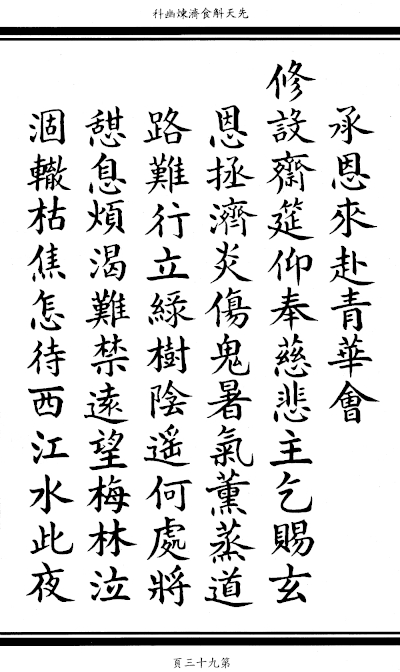 先天斛食濟煉幽科
承恩來赴青華會
修設齋筵仰奉慈悲主乞賜玄
恩拯濟炎傷鬼暑氣薰蒸道
路難行立綠樹陰遙何處將
憇息煩渴難禁遠望梅林泣
涸轍枯焦怎待西江水此夜
第九十三頁